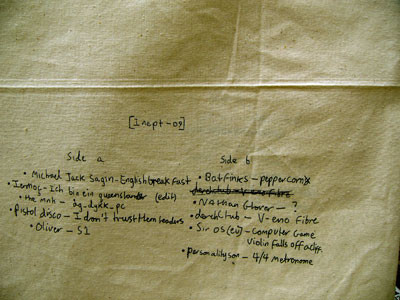 [Inept-09]
Side a
• Michael Jack Sagin - English breakfast
• Iermoc - Ich bin ein queenslander (edit)
• the mnk - ag_dgdk_pc
• pistol disco - I don't trust them leaders
• Oliver - S1
Side b
• Batfinks - peppercorns
derek tub - V-eno Fibre
• Nathan Glover - ?
• derek tub - V-eno Fibre
• Sir OS (eu) - computer Game
Violin falls off a cliff.
• personalityson - 4/4 Metronome